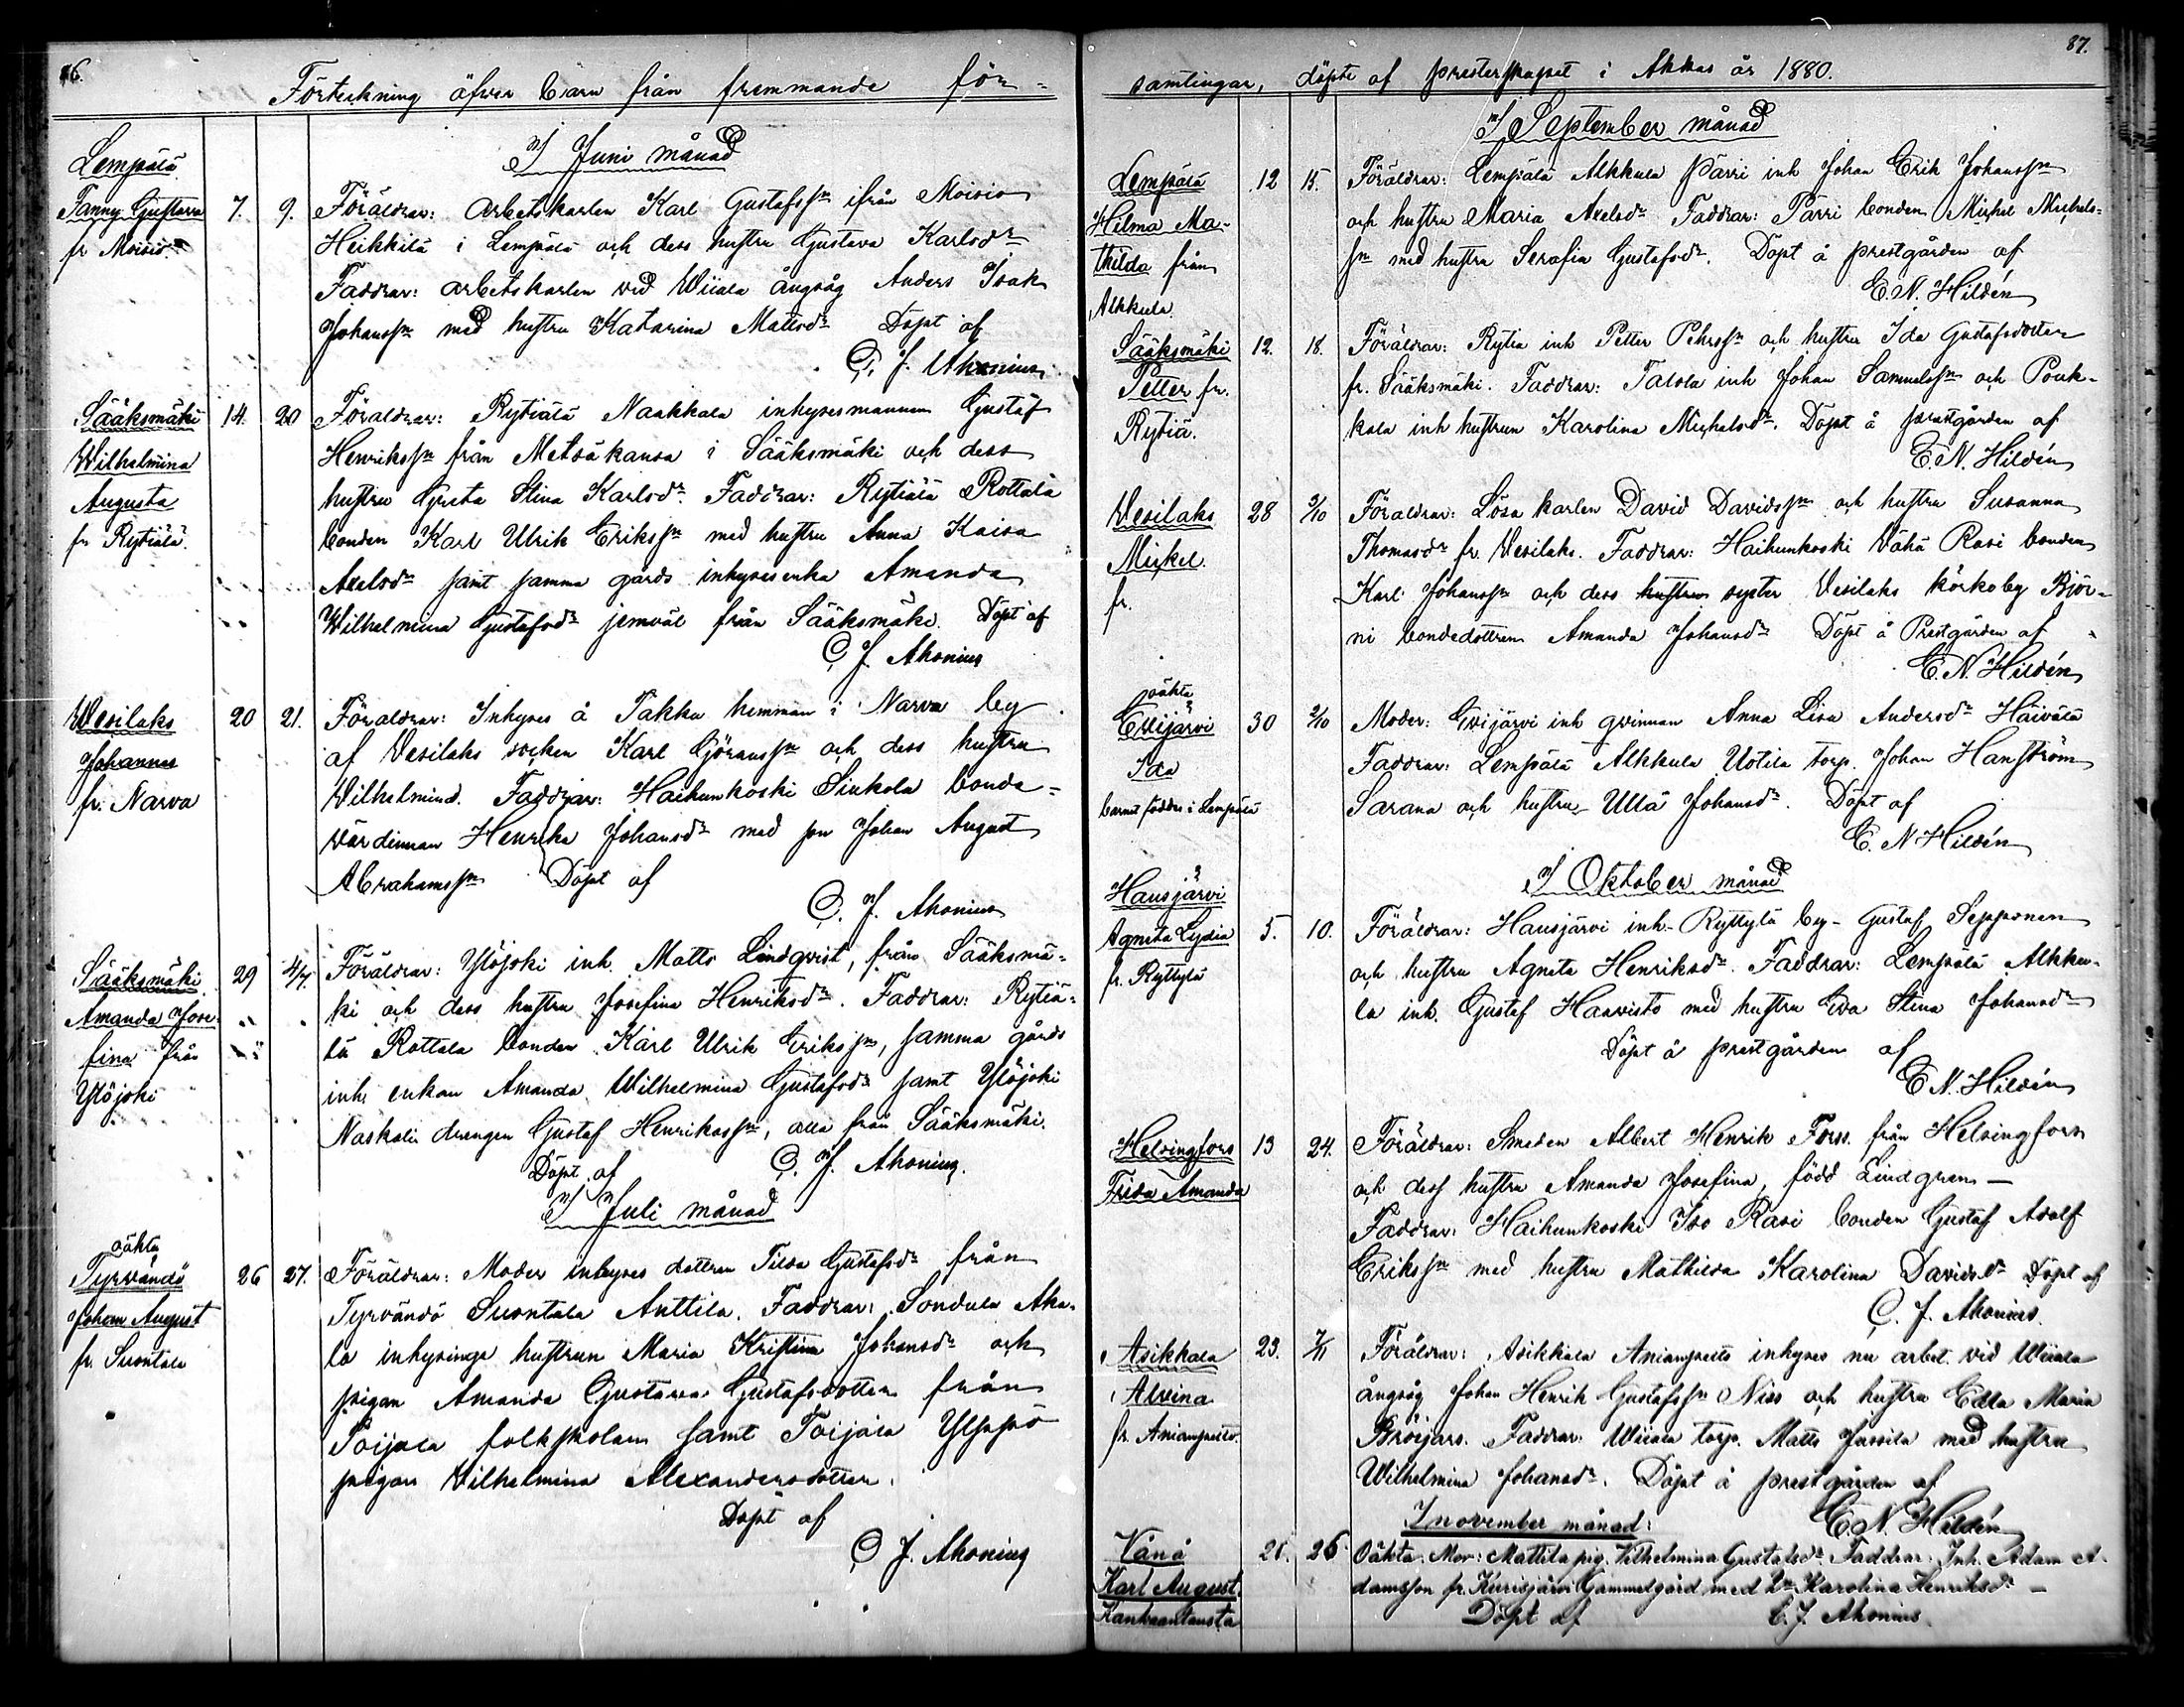 86.
Förteckning öfver barn från fremmande för-
I Juni månad
Lempälä
Fanny Gustava 7. 9. Föräldrar: Arbetskarlen Karl Gustafssn ifrån Moisio
fr Moisio. Heikkilä i Lempälä och dess hustru Gustava Karlsdr
Faddrar: arbetskarlen vid Wiiala ångsåg Anders Isak
Johanssn med hustru Katarina Mattsdr Döpt af
C. J. Ahonius.
Sääksmäki 14. 20 Föräldrar: Rytiälä Naakkala inhysesmannen Gustaf
Wilhelmina Henrikssn från Metsäkansa i Sääksmäki och dess
Augusta hustru Greta Stina Karlsdr. Faddrar: Rytiälä Rottala
fr Rytiälä. bonden Karl Ulrik Erikssn med hustru Anna Kaisa
Axelsdr samt samma gårds inhysesenka Amanda
Wilhelmina Gustafsdr jemväl från Sääksmäki. Döpt af
C J. Ahonius
Vesilaks 20 21. Föräldrar: Inhyses å Takku hemman i Narva by
Johannes af Vesilaks socken Karl Göranssn och dess hustru
fr. Narva Vilhelmina. Faddrar: Haihunkoski Sinkola bonde-
värdinnan Henrika Johansdr med son Johan August
Abrahamssn Döpt af
C. J. Ahonius
Sääksmäki 29 4/7. Föräldrar: Ylöjoki inh. Matts Lindqvist, från Sääksmä-
Amanda Jose- ki och dess hustru Josefina Henriksdr. Faddrar: Rytiä-
fina från lä Rottala bonden Karl Ulrik Erikssn, samma gårds
Ylöjoki inh. enkan Amanda Wilhelmina Gustafsdr samt Ylöjoki
Naskali drengen Gustaf Henrikssn, alla från Sääksmäki.
Döpt af C. J. Ahonius.
I Juli månad
oäkta
Tyrvändö 26 27. Föräldrar: Moder inhyses dottren Tilda Gustafsdr från
Johan August Tyrvändö Suontala Anttila. Faddrar: Sondula Aka-
fr. Suontala la inhysinge hustrun Maria Kristina Johansdr och
pigan Amanda Gustava Gustafsdotter från
Toijala folkskolan samt Toijala Yspö
pigan Vilhelmina Alexandersdotter.
Döpt af
C J. Ahonius
87.
samlingar, döpte af presterskapet i Akkas år 1880.
I September månad
Lempälä 12 15. Föräldrar: Lempälä Alkkula Pärri inh Johan Erik Johanssn
Hilma Ma- och hustru Maria Axelsdr Faddrar: Pärri bonden Mickel Mickels-
thilda från sn med hustru Serafia Gustafsdr. Döpt å prestgården af
Alkkula. E. N. Hildén
Sääksmäki 12. 18. Föräldrar: Rytiä inh Petter Pehrssn och hustru Ida Gustafsdotter
Petter fr. fr. Sääksmäki. Faddrar: Talola inh Johan Samuelssn och Pouk-
Rytiä. kala inh hustrun Karolina Michelsdr. Döpt å prestgården af
E. N. Hildén
Vesilaks 28 3/10 Föräldrar: Lösa karlen David Davidssn och hustru Susanna
Mickel. Thomasdr fr. Vesilaks. Faddrar: Haihunkoski Vähä Rasi bonden
fr. Karl Johanssn och dess hustrus syster Vesilaks körkoby Björ-
ni bondedottren Amanda Johansdr Döpt å Prestgården af
E. N. Hildén
oäkta
Evijärvi 30 3/10 Moder: Evijärvi inh qvinnan Anna Lisa Andersdr Häivälä
Ida Faddrar: Lempälä Alkkula Uotila torp. Johan Hanström
barnet föddes i Lempälä Sarana och hustru Ulla Johansdr. Döpt af
E. N Hildén
I Oktober månad
Hausjärvi
Agneta Lydia 5. 10. Föräldrar: Hausjärvi inh. Ryttylä by. Gustaf Sepponen
fr. Ryttylä och hustru Agneta Henriksdr. Faddrar: Lempälä Alkku-
la inh. Gustaf Haavisto med hustru Eva Stina Johansdr
Döpt å prestgården af
E N. Hildén
Helsingfors 13 24. Föräldrar: Smeden Albert Henrik Forss. från Helsingfors
Frida Amanda och dess hustru Amanda Josefina, född Lindgren —
Faddrar: Haihunkoski Iso Rasi bonden Gustaf Adolf
Erikssn med hustru Mathilda Karolina Davidsdr Döpt af
C. J. Ahonius.
Asikkala 23. 7/11 Föräldrar: Asikkala Anianpelto inhyses nu arbet. vid Wiiala
Alvina ångsåg Johan Henrik Gustafssn Niss och hustru Edla Maria
fr. Anianpelto. Bröijars. Faddrar: Wiiala torp. Matts Jussila med hustru
Wilhelmina Johansdr. Döpt å prestgården af
I november månad: E. N. Hildén
Vånå 21. 26. Oäkta. Mor: Mattila pig. Vilhelmina Gustafsdr. Faddrar: Inh. Adam A-
Karl August. damsson fr. Kurisjärvi Gammelgård med hu Karolina Henriksdr —
Kankaantausta Döpt af C. J. Ahonius